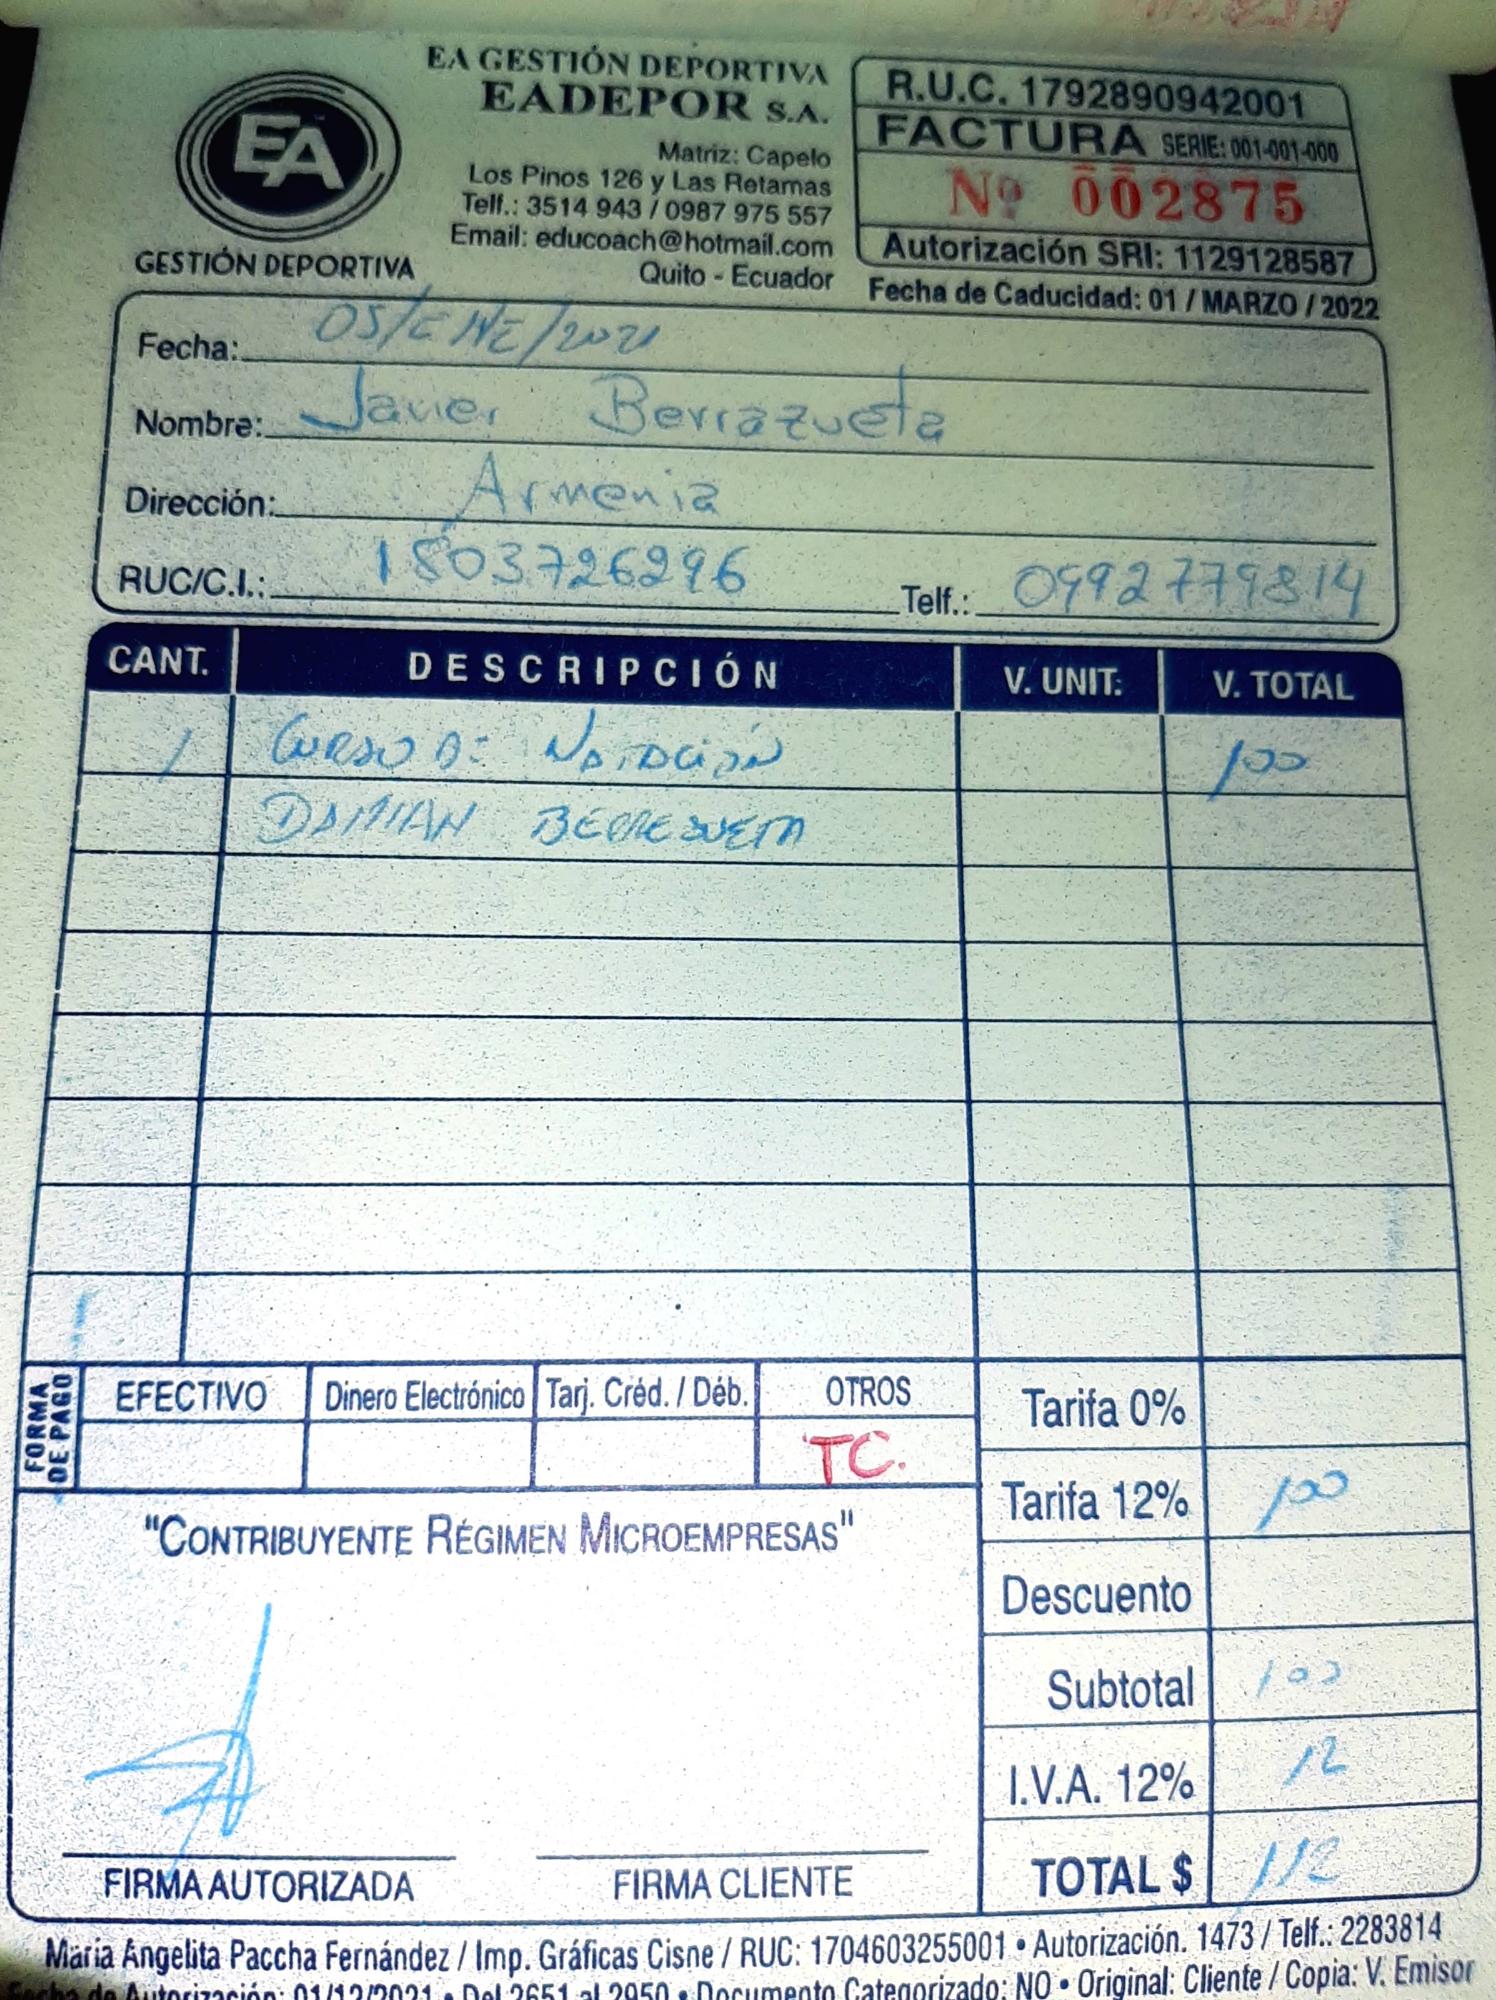 EA GESTIÓN DEPORTIVA
EADEPOR S.A.
EA
GESTIÓN DEPORTIVA
Matriz: Capelo
Los Pinos 126 y Las Retamas
Telf.: 3514 943 / 0987 975 557
Email: educoach@hotmail.com
Quito - Ecuador
R.U.C. 1792890942001
FACTURA SERIE: 001-001-000
Nº 002875
Autorización SRI: 1129128587
Fecha de Caducidad: 01 / MARZO / 2022
Fecha: 05/ENE/2021
Nombre: Javier Berrazueta
Dirección: Armenia
RUC/C.I.: 1803726296 Telf.: 0992779814
CANT. DESCRIPCIÓN V. UNIT: V. TOTAL
1 CURSO DE NATACIÓN 100
DAMIAN
FORMA DE PAGO
EFECTIVO Dinero Electrónico Tarj. Créd. / Déb. OTROS
TC.
Tarifa 0%
Tarifa 12% 100
Descuento
Subtotal 100
I.V.A. 12% 12
TOTAL $ 112
"CONTRIBUYENTE RÉGIMEN MICROEMPRESAS"
FIRMA AUTORIZADA FIRMA CLIENTE
María Angelita Paccha Fernández / Imp. Gráficas Cisne / RUC: 1704603255001 • Autorización. 1473 / Telf.: 2283814
Fecha de Autorización: 01/12/2021 • Del 2651 al 2950 • Documento Categorizado: NO • Original: Cliente / Copia: V. Emisor